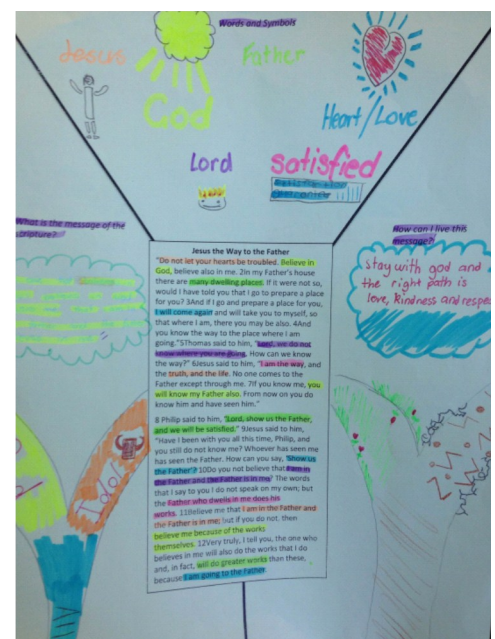 Words and Symbols
Jesus
Father
God
Heart/Love
Lord
satisfied
What is the message of the
scripture?
How can I live this
message?
stay with god and
the right path is
love, kindness and respe
Jesus the Way to the Father
"Do not let your hearts be troubled. Believe in
God, believe also in me. 2In my Father's house
there are many dwelling places. If it were not so,
would I have told you that I go to prepare a place
for you? 3And if I go and prepare a place for you,
I will come again and will take you to myself, so
that where I am, there you may be also. 4And
you know the way to the place where I am
going."5Thomas said to him, "Lord, we do not
know where you are going. How can we know
the way?" 6Jesus said to him, "I am the way, and
the truth, and the life. No one comes to the
Father except through me. 7If you know me, you
will know my Father also. From now on you do
know him and have seen him."
8 Philip said to him, "Lord, show us the Father,
and we will be satisfied." 9Jesus said to him,
"Have I been with you all this time, Philip, and
you still do not know me? Whoever has seen me
has seen the Father. How can you say, 'Show us
the Father'? 10Do you not believe that I am in
the Father and the Father is in me? The words
that I say to you I do not speak on my own; but
the Father who dwells in me does his
works. 11Believe me that I am in the Father and
the Father is in me; but if you do not, then
believe me because of the works
themselves. 12Very truly, I tell you, the one who
believes in me will also do the works that I do
and, in fact, will do greater works than these,
because I am going to the Father.